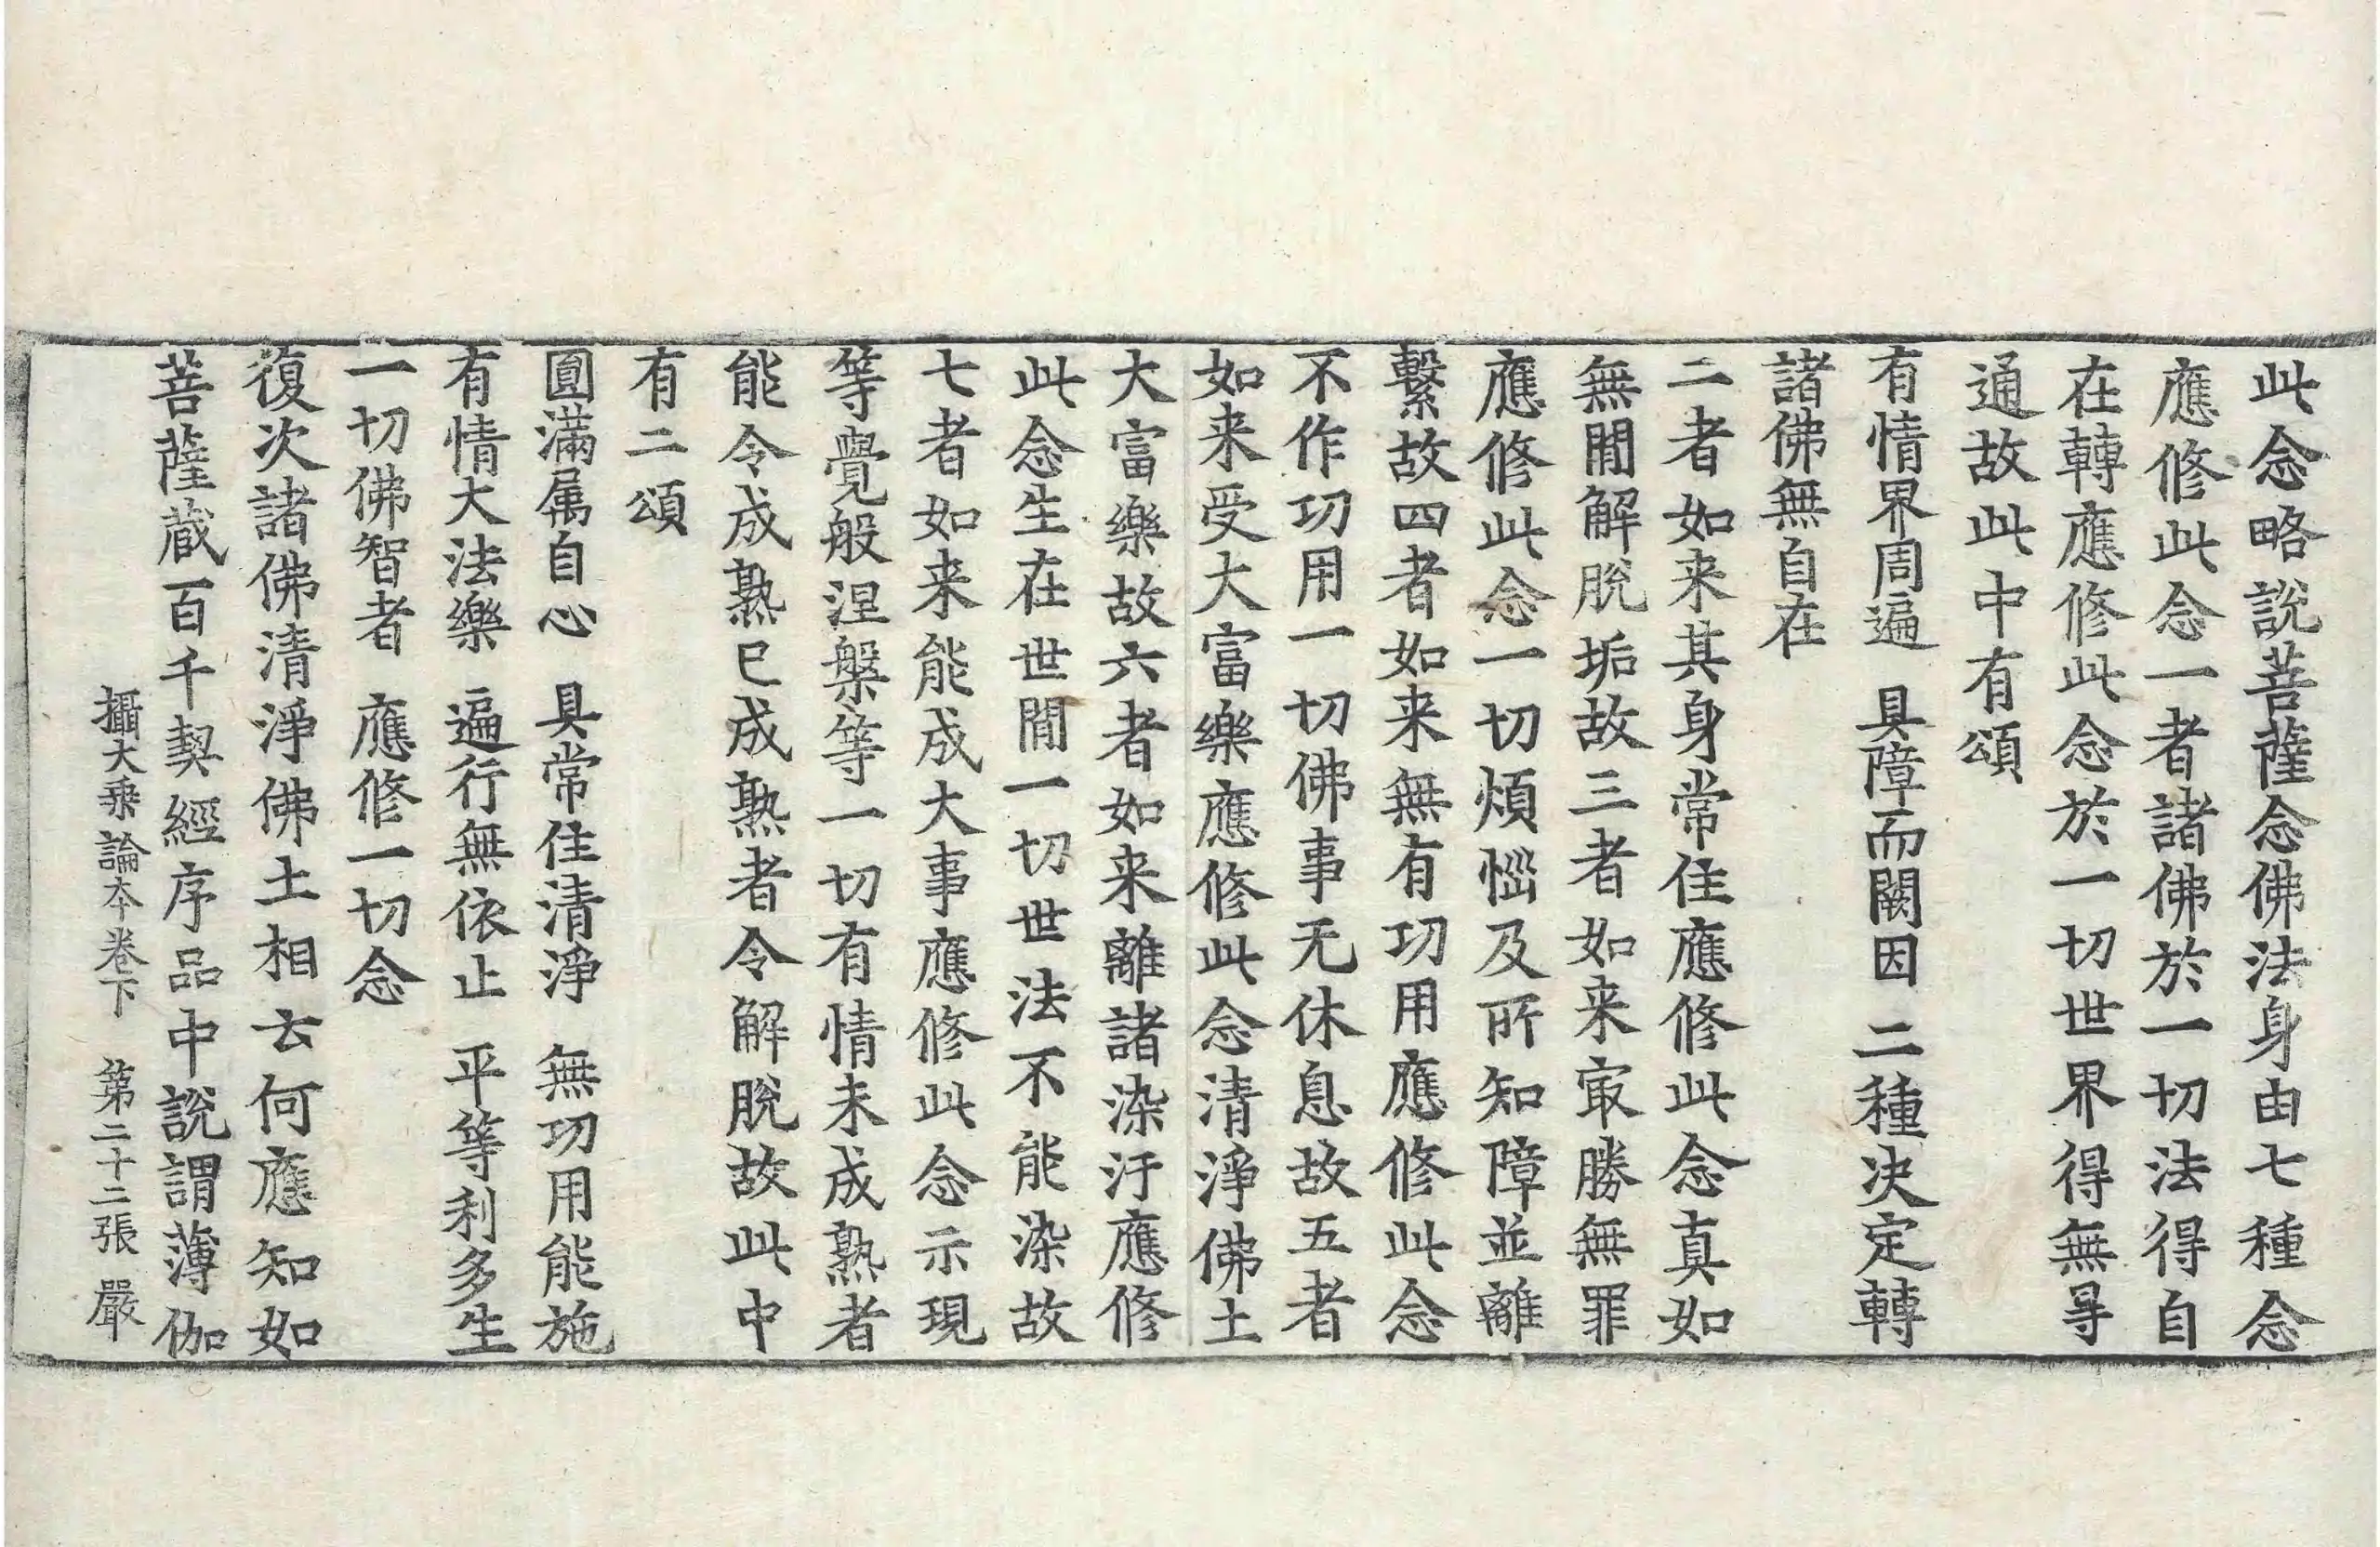 此念略說菩薩念佛法身由七種念
應修此念一者諸佛於一切法得自
在轉應修此念於一切世界得無㝵
通故此中有頌
有情界周遍　具障而闕因　二種決定轉
諸佛無自在
二者如来其身常住應修此念真如
無閒解脫垢故三者如来㝡勝無罪
應修此念一切煩惱及所知障並離
繫故四者如来無有功用應修此念
不作功用一切佛事无休息故五者
如来受大富樂應修此念清淨佛土
大富樂故六者如来離諸染汙應修
此念生在世閒一切世法不能染故
七者如来能成大事應修此念示現
等覺般涅槃等一切有情未成熟者
能令成熟已成熟者令解脫故此中
有二頌
圓滿属自心　具常住清淨　無功用能施
有情大法樂　遍行無依止　平等利多生
一切佛智者　應修一切念
復次諸佛清淨佛土相云何應知如
菩薩蔵百千契經序品中說謂薄伽
攝大乗論本卷下　第二十二張　嚴